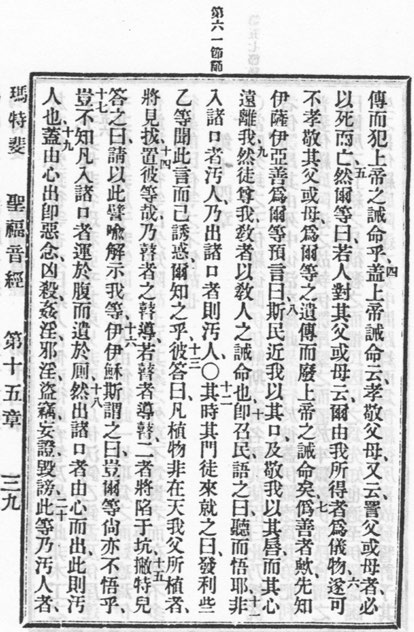 第六一節
傳而犯上帝之誡命乎四蓋上帝誡命云孝敬父母又云詈父或母者必
以死而亡五然爾等曰若人對其父或母云爾由我所得者爲儀物六遂可
不孝敬其父或母爲爾等之遺傳而廢上帝之誡命矣七僞善者歟先知
伊薩伊亞善爲爾等預言曰八斯民近我以其口及敬我以其唇而其心
遠離我九然徒尊我教者以教人之誡命也十卽召民語之曰聽而悟耶十一非
入諸口者汚人乃出諸口者則汚人〇十二其時其門徒來就之曰發利些
乙等聞此言而已誘惑爾知之乎十三彼答曰凡植物非在天我父所植者
將見拔十四置彼等哉乃瞽者之瞽導若瞽者導瞽二者將陷于坑十五撇特兒
答之曰請以此譬喻解示我等十六伊伊穌斯謂之曰豈爾等尚亦不悟乎
十七豈不知凡入諸口者運於腹而遺於厠十八然出諸口者由心而出此則汚
人也十九蓋由心出卽惡念凶殺姦淫邪淫盜竊妄證毀謗二十此等乃汚人者
瑪特斐 聖福音經 第十五章 三九